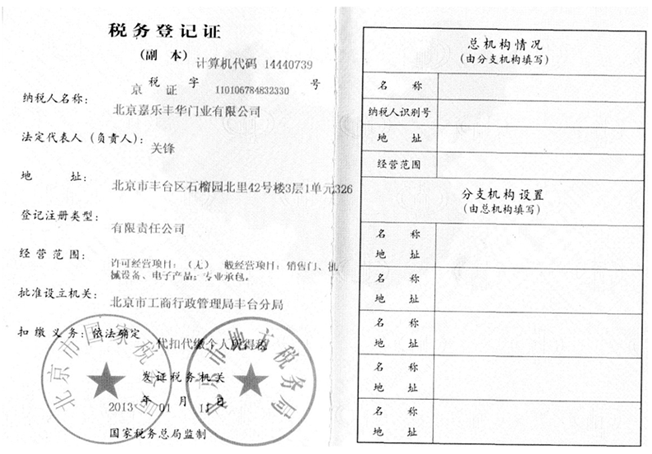 税务登记证
(副 本) 计算机代码 14440739
京 税 证 字 110106784832330 号
纳税人名称: 北京嘉乐丰华门业有限公司
法定代表人(负责人): 关锋
地 址: 北京市丰台区石榴园北里42号楼3层1单元326
登记注册类型: 有限责任公司
经营范围: 许可经营项目:(无) 一般经营项目:销售门、机
械设备、电子产品;专业承包。
批准设立机关: 北京市工商行政管理局丰台分局
扣缴义务: 依法确定 代扣代缴个人所得税
北京市国家税务局
北京市地方税务局
发证税务机关
2013 年 01 月 11 日
国家税务总局监制
总机构情况
(由分支机构填写)
名 称
纳税人识别号
地 址
经营范围
分支机构设置
(由总机构填写)
名 称
地 址
名 称
地 址
名 称
地 址
名 称
地 址
名 称
地 址